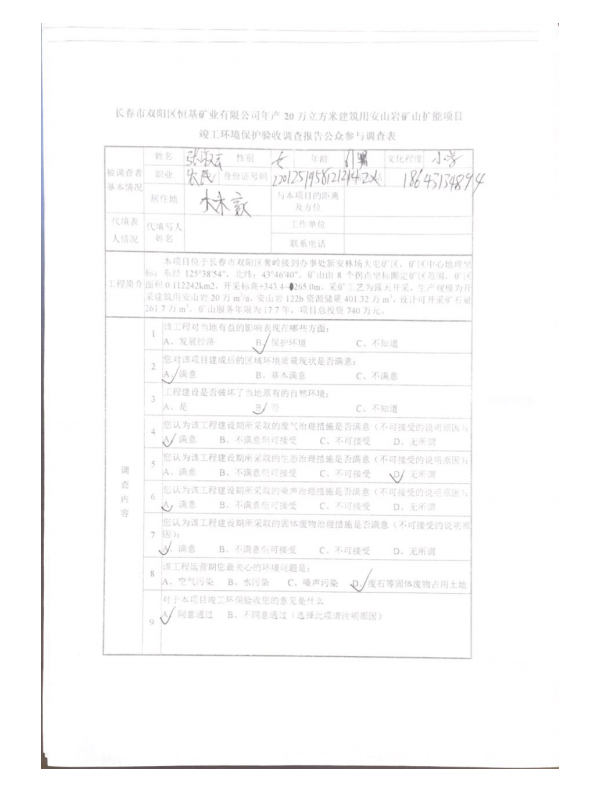 长春市双阳区恒基矿业有限公司年产 20 万立方米建筑用安山岩矿山扩能项目
竣工环境保护验收调查报告公众参与调查表
被调查者基本情况 姓名 性别 女 年龄 文化程度 小学
职业 农民 身份证号码 18643134894
居住地 与本项目的距离及方位
代填表人情况 代填写人姓名 工作单位
联系电话
工程简介 本项目位于长春市双阳区奢岭接到办事处新安林场大屯矿区，矿区中心地理坐
标：东经 125°38′54″，北纬：43°46′40″，矿山由 8 个拐点坐标圈定矿区范围，矿区
面积 0.112242km2，开采标高+343.4-265.0m，采矿工艺为露天开采，生产规模为开
采建筑用安山岩 20 万 m³/a，安山岩 122b 资源储量 401.32 万 m³，设计可开采矿石量
261.7 万 m³，矿山服务年限为 17.7 年，项目总投资 740 万元。
调查内容
1 该工程对当地有益的影响表现在哪些方面：
A、发展经济 B、保护环境 C、不知道
2 您对该项目建成后的区域环境质量现状是否满意：
A、满意 B、基本满意 C、不满意
3 工程建设是否破坏了当地原有的自然环境：
A、是 B、否 C、不知道
4 您认为该工程建设期所采取的废气治理措施是否满意（不可接受的说明原因）：
A、满意 B、不满意但可接受 C、不可接受 D、无所谓
5 您认为该工程建设期所采取的生态治理措施是否满意（不可接受的说明原因）：
A、满意 B、不满意但可接受 C、不可接受 D、无所谓
6 您认为该工程建设期所采取的噪声治理措施是否满意（不可接受的说明原因）：
A、满意 B、不满意但可接受 C、不可接受 D、无所谓
7 您认为该工程建设期所采取的固体废物治理措施是否满意（不可接受的说明原
因）：
A、满意 B、不满意但可接受 C、不可接受 D、无所谓
8 该工程运营期您最关心的环境问题是：
A、空气污染 B、水污染 C、噪声污染 D、废石等固体废物占用土地
9 对于本项目竣工环保验收您的意见是什么
A、同意通过 B、不同意通过（选择此项请说明原因）